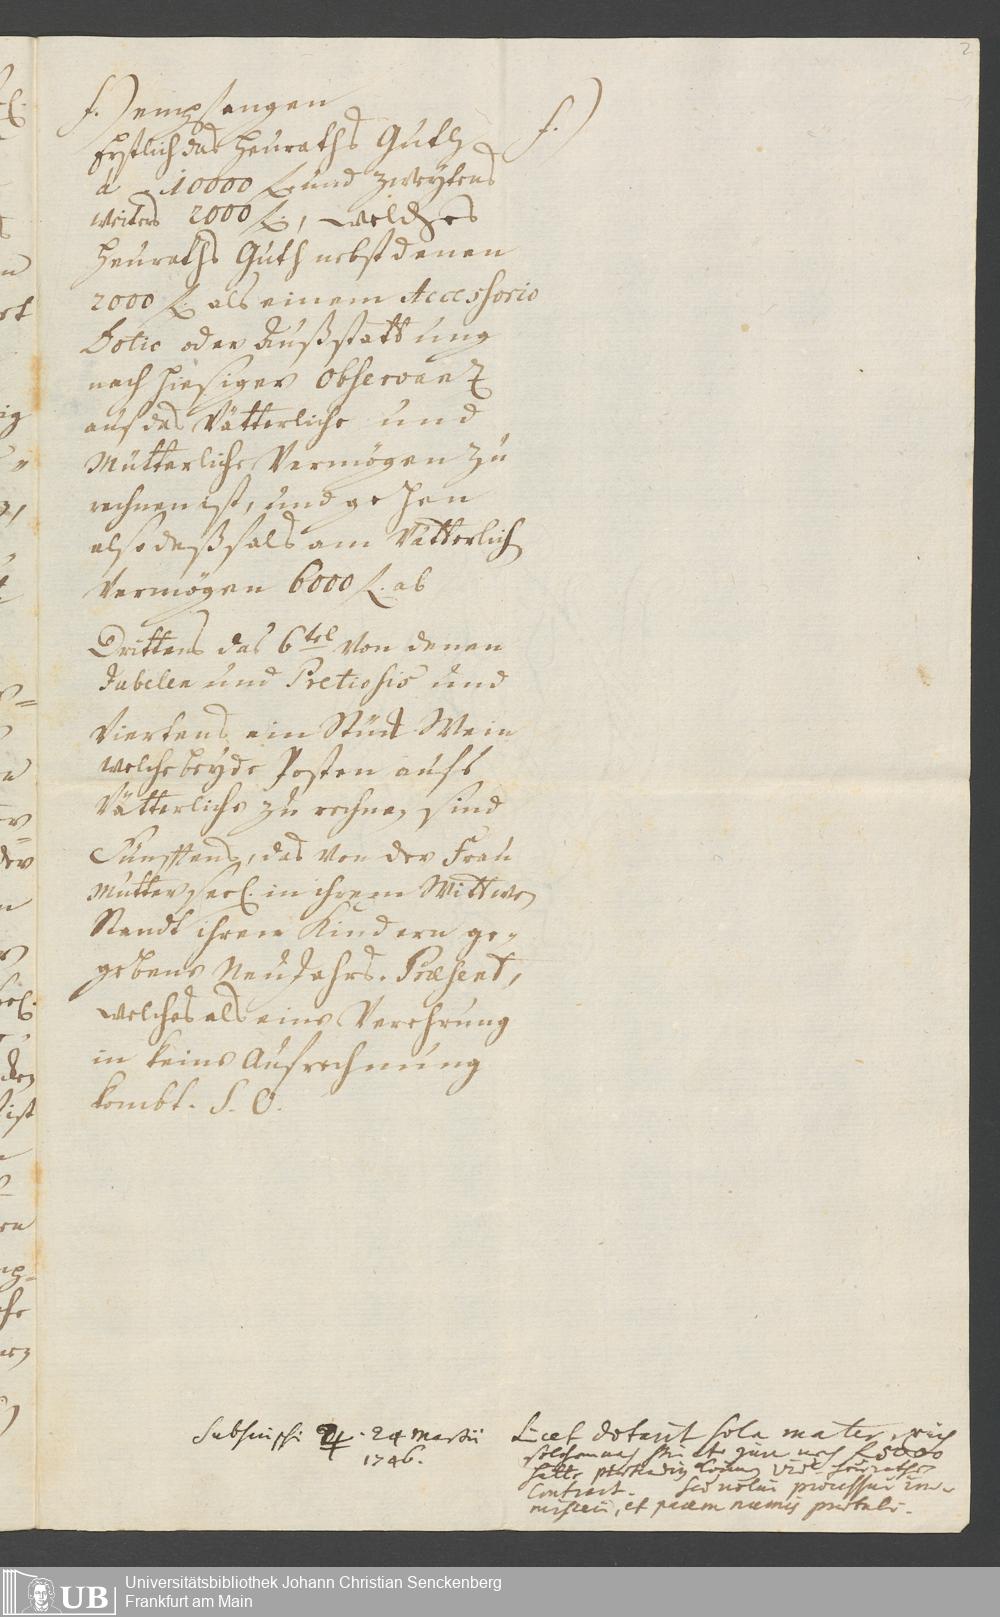 2
f.) empfangen
f.)
Erstlich das Heuraths Guth
à 10000 f. und zweytens
weiters 2000 f., welches
Heuraths Guth nebst denen
2000 f. als einem Accessorio
Dotis oder Außstattung
nach hiesiger Observantz
auf das Vätterliche und
Mütterliche Vermögen zu
rechnen ist, und gehen
also deßfals am Vätterlich
Vermögen 6000 f. ab
Drittens das 6tel von denen
Jubelen und Pretiosis und
Viertens ein Stück Wein
welche beyde Posten aufs
Vätterliche zu rechnen sind
Fünfftens, das von der Frau
Mutter seel. in ihrem Wittwen
Standt ihren Kindern ge-
gebene NeuJahrs-Præsent,
welches als eine Verehrung
in keine Aufrechnung
kombt. S. O.
Subscripsi ♃. 24 Martii
1746.
Licet dotavit sola mater, wie
f 5000
hatte
Contract. Sed nolui processui im-
miscere, et
Universitätsbibliothek Johann Christian Senckenberg
Frankfurt am Main
UB